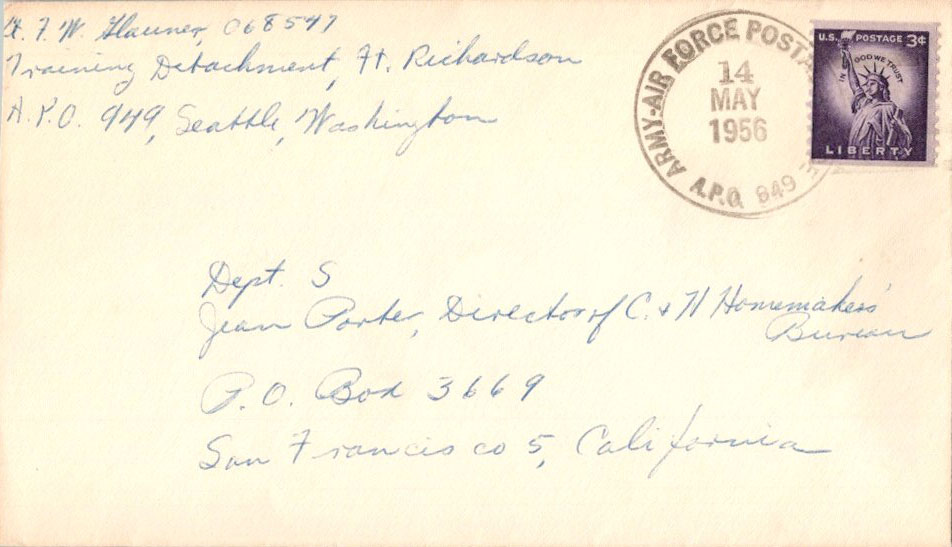 Lt. F. W. Glauner, 068547
Training Detachment, Ft. Richardson
A.P.O. 949, Seattle, Washington
ARMY-AIR FORCE POSTA
14
MAY
1956
A.P.O. 949
U.S. POSTAGE 3¢
IN GOD WE TRUST
LIBERTY
Dept. S
Jean Porter, Director of C. & H Homemakers'
Bureau
P.O. Box 3669
San Francisco 5, California